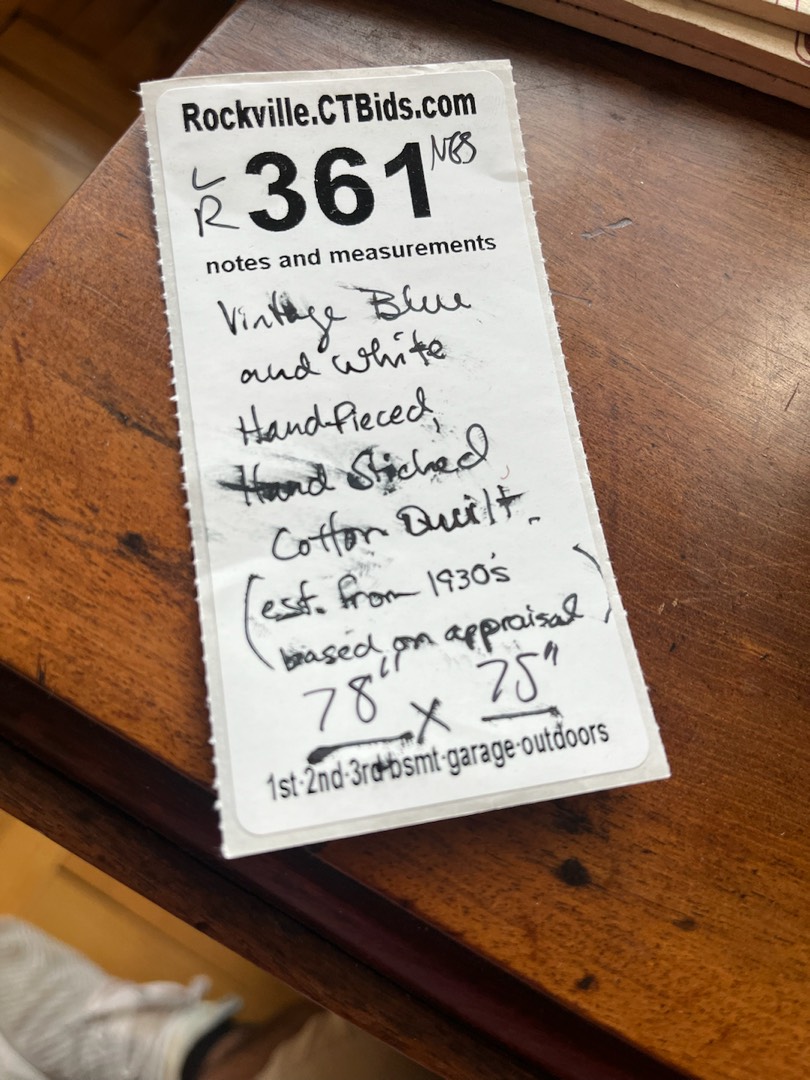 Rockville.CTBids.com
L
R 361
notes and measurements
Vintage Blue
and white
Hand Pieced,
Hand Stiched
Cotton Quilt.
(est. from 1930's
based on appraisal)
78" x 75"
1st·2nd·3rd·bsmt·garage·outdoors